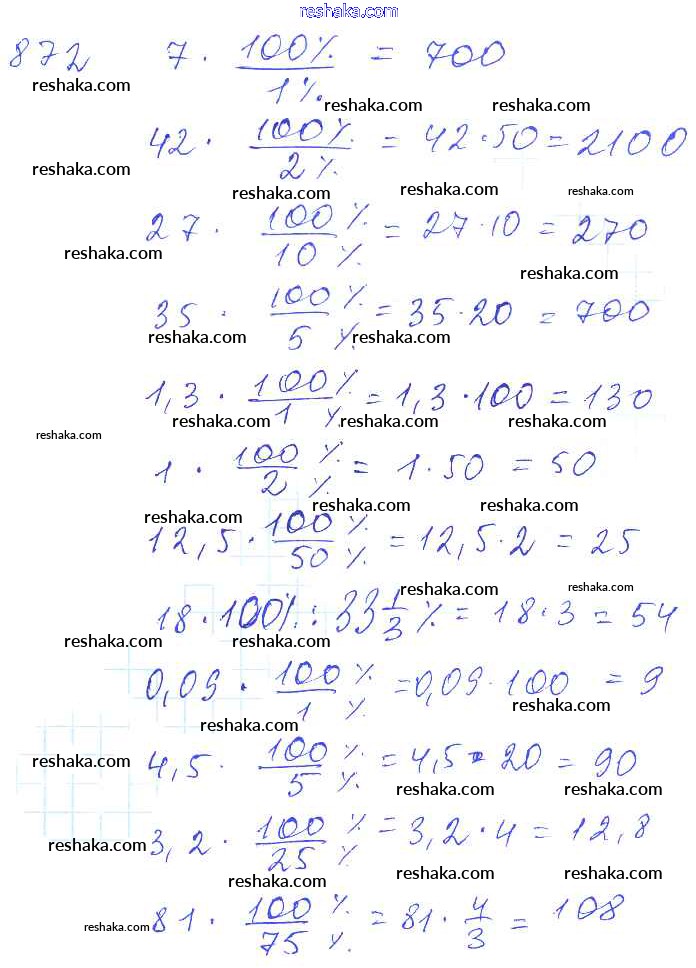 reshaka.com
872 7 · 100%/1% = 700
reshaka.com reshaka.com reshaka.com
42 · 100%/2% = 42·50 = 2100
reshaka.com reshaka.com reshaka.com reshaka.com
27 · 100%/10% = 27·10 = 270
reshaka.com reshaka.com
35 · 100%/5% = 35·20 = 700
reshaka.com reshaka.com
1,3 · 100%/1% = 1,3·100 = 130
reshaka.com reshaka.com reshaka.com reshaka.com
1 · 100%/2% = 1·50 = 50
reshaka.com reshaka.com reshaka.com
12,5 · 100%/50% = 12,5·2 = 25
reshaka.com reshaka.com
18·100% : 33 1/3 % = 18·3 = 54
reshaka.com reshaka.com reshaka.com
0,09 · 100%/1% = 0,09·100 = 9
reshaka.com reshaka.com
4,5 · 100%/5% = 4,5·20 = 90
reshaka.com reshaka.com reshaka.com reshaka.com
3,2 · 100%/25% = 3,2·4 = 12,8
reshaka.com reshaka.com reshaka.com
81 · 100%/75% = 81 · 4/3 = 108
reshaka.com reshaka.com